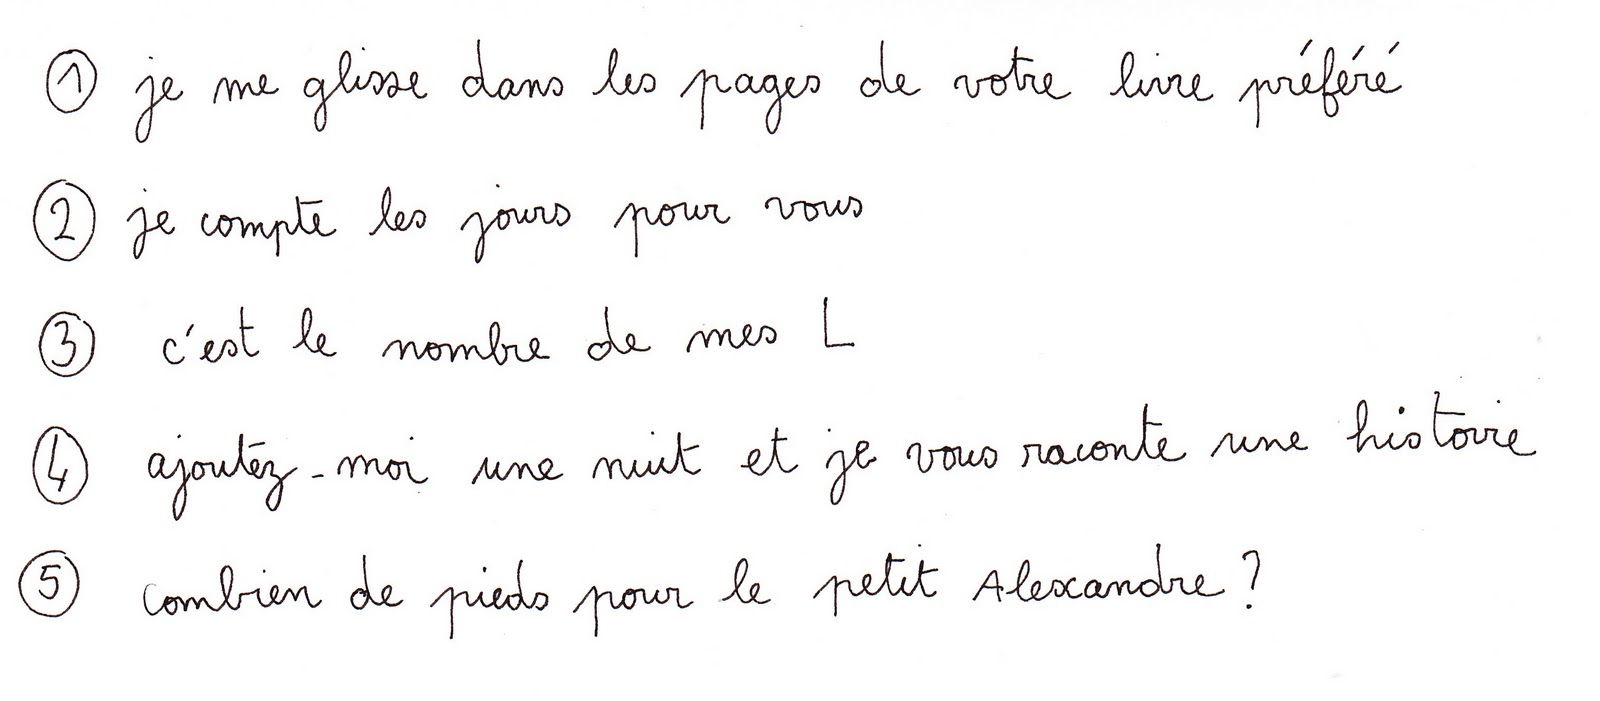 ① je me glisse dans les pages de votre livre préféré
② je compte les jours pour vous
③ c'est le nombre de mes L
④ ajoutez-moi une nuit et je vous raconte une histoire
⑤ combien de pieds pour le petit Alexandre ?